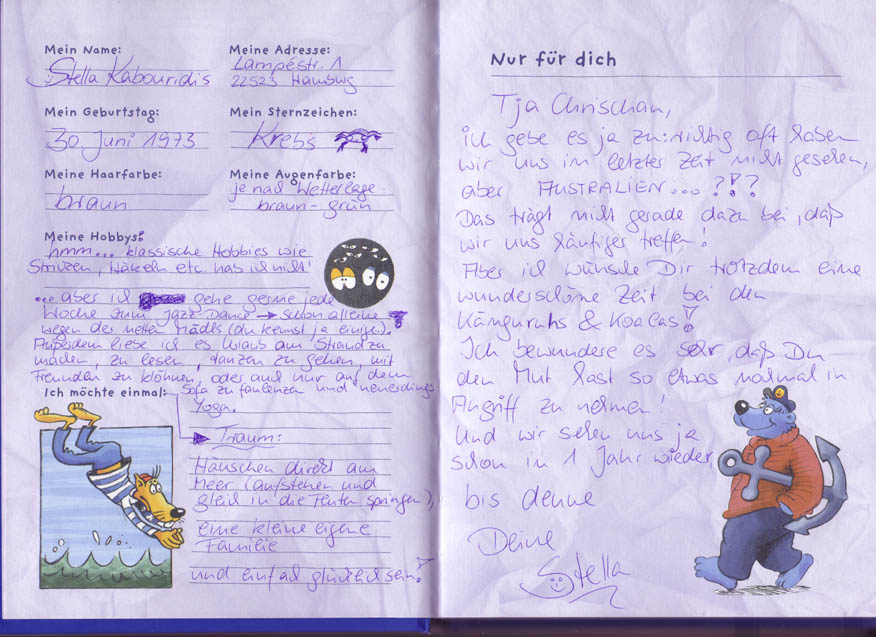 Mein Name:
Stella Kabouridis
Mein Geburtstag:
30. Juni 1973
Meine Haarfarbe:
braun
Meine Adresse:
Lampéstr. 1
22523 Hamburg
Mein Sternzeichen:
Krebs
Meine Augenfarbe:
je nach Wetterlage
braun-grün
Meine Hobbys:
hmm... klassische Hobbies wie
Stricken, Häkeln etc. hab ich nicht!
... aber ich gehe gerne jede
Woche zum Jazz-Dance → schon alleine
wegen der netten Mädls (du kennst ja einige).
Außerdem liebe ich es Urlaub am Strand zu
machen, zu lesen, tanzen zu gehen, mit
Freunden zu klönen, oder auch nur auf dem
Sofa zu faulenzen und neuerdings
Yoga.
Ich möchte einmal:
Traum:
Häuschen direkt am
Meer (aufstehen und
gleich in die Fluten springen),
eine kleine eigene
Familie
und einfach glücklich sein!
Nur für dich
Tja Chrischan,
ich gebe es ja zu: richtig oft haben
wir uns in letzter Zeit nicht gesehen,
aber AUSTRALIEN... ?!?
Das trägt nicht gerade dazu bei, daß
wir uns häufiger treffen!
Aber ich wünsche Dir trotzdem eine
wunderschöne Zeit bei den
Känguruhs & Koalas!
Ich bewundere es sehr, daß Du
den Mut hast so etwas nochmal in
Angriff zu nehmen!
Und wir sehen uns ja
schon in 1 Jahr wieder
bis denne
Deine
Stella